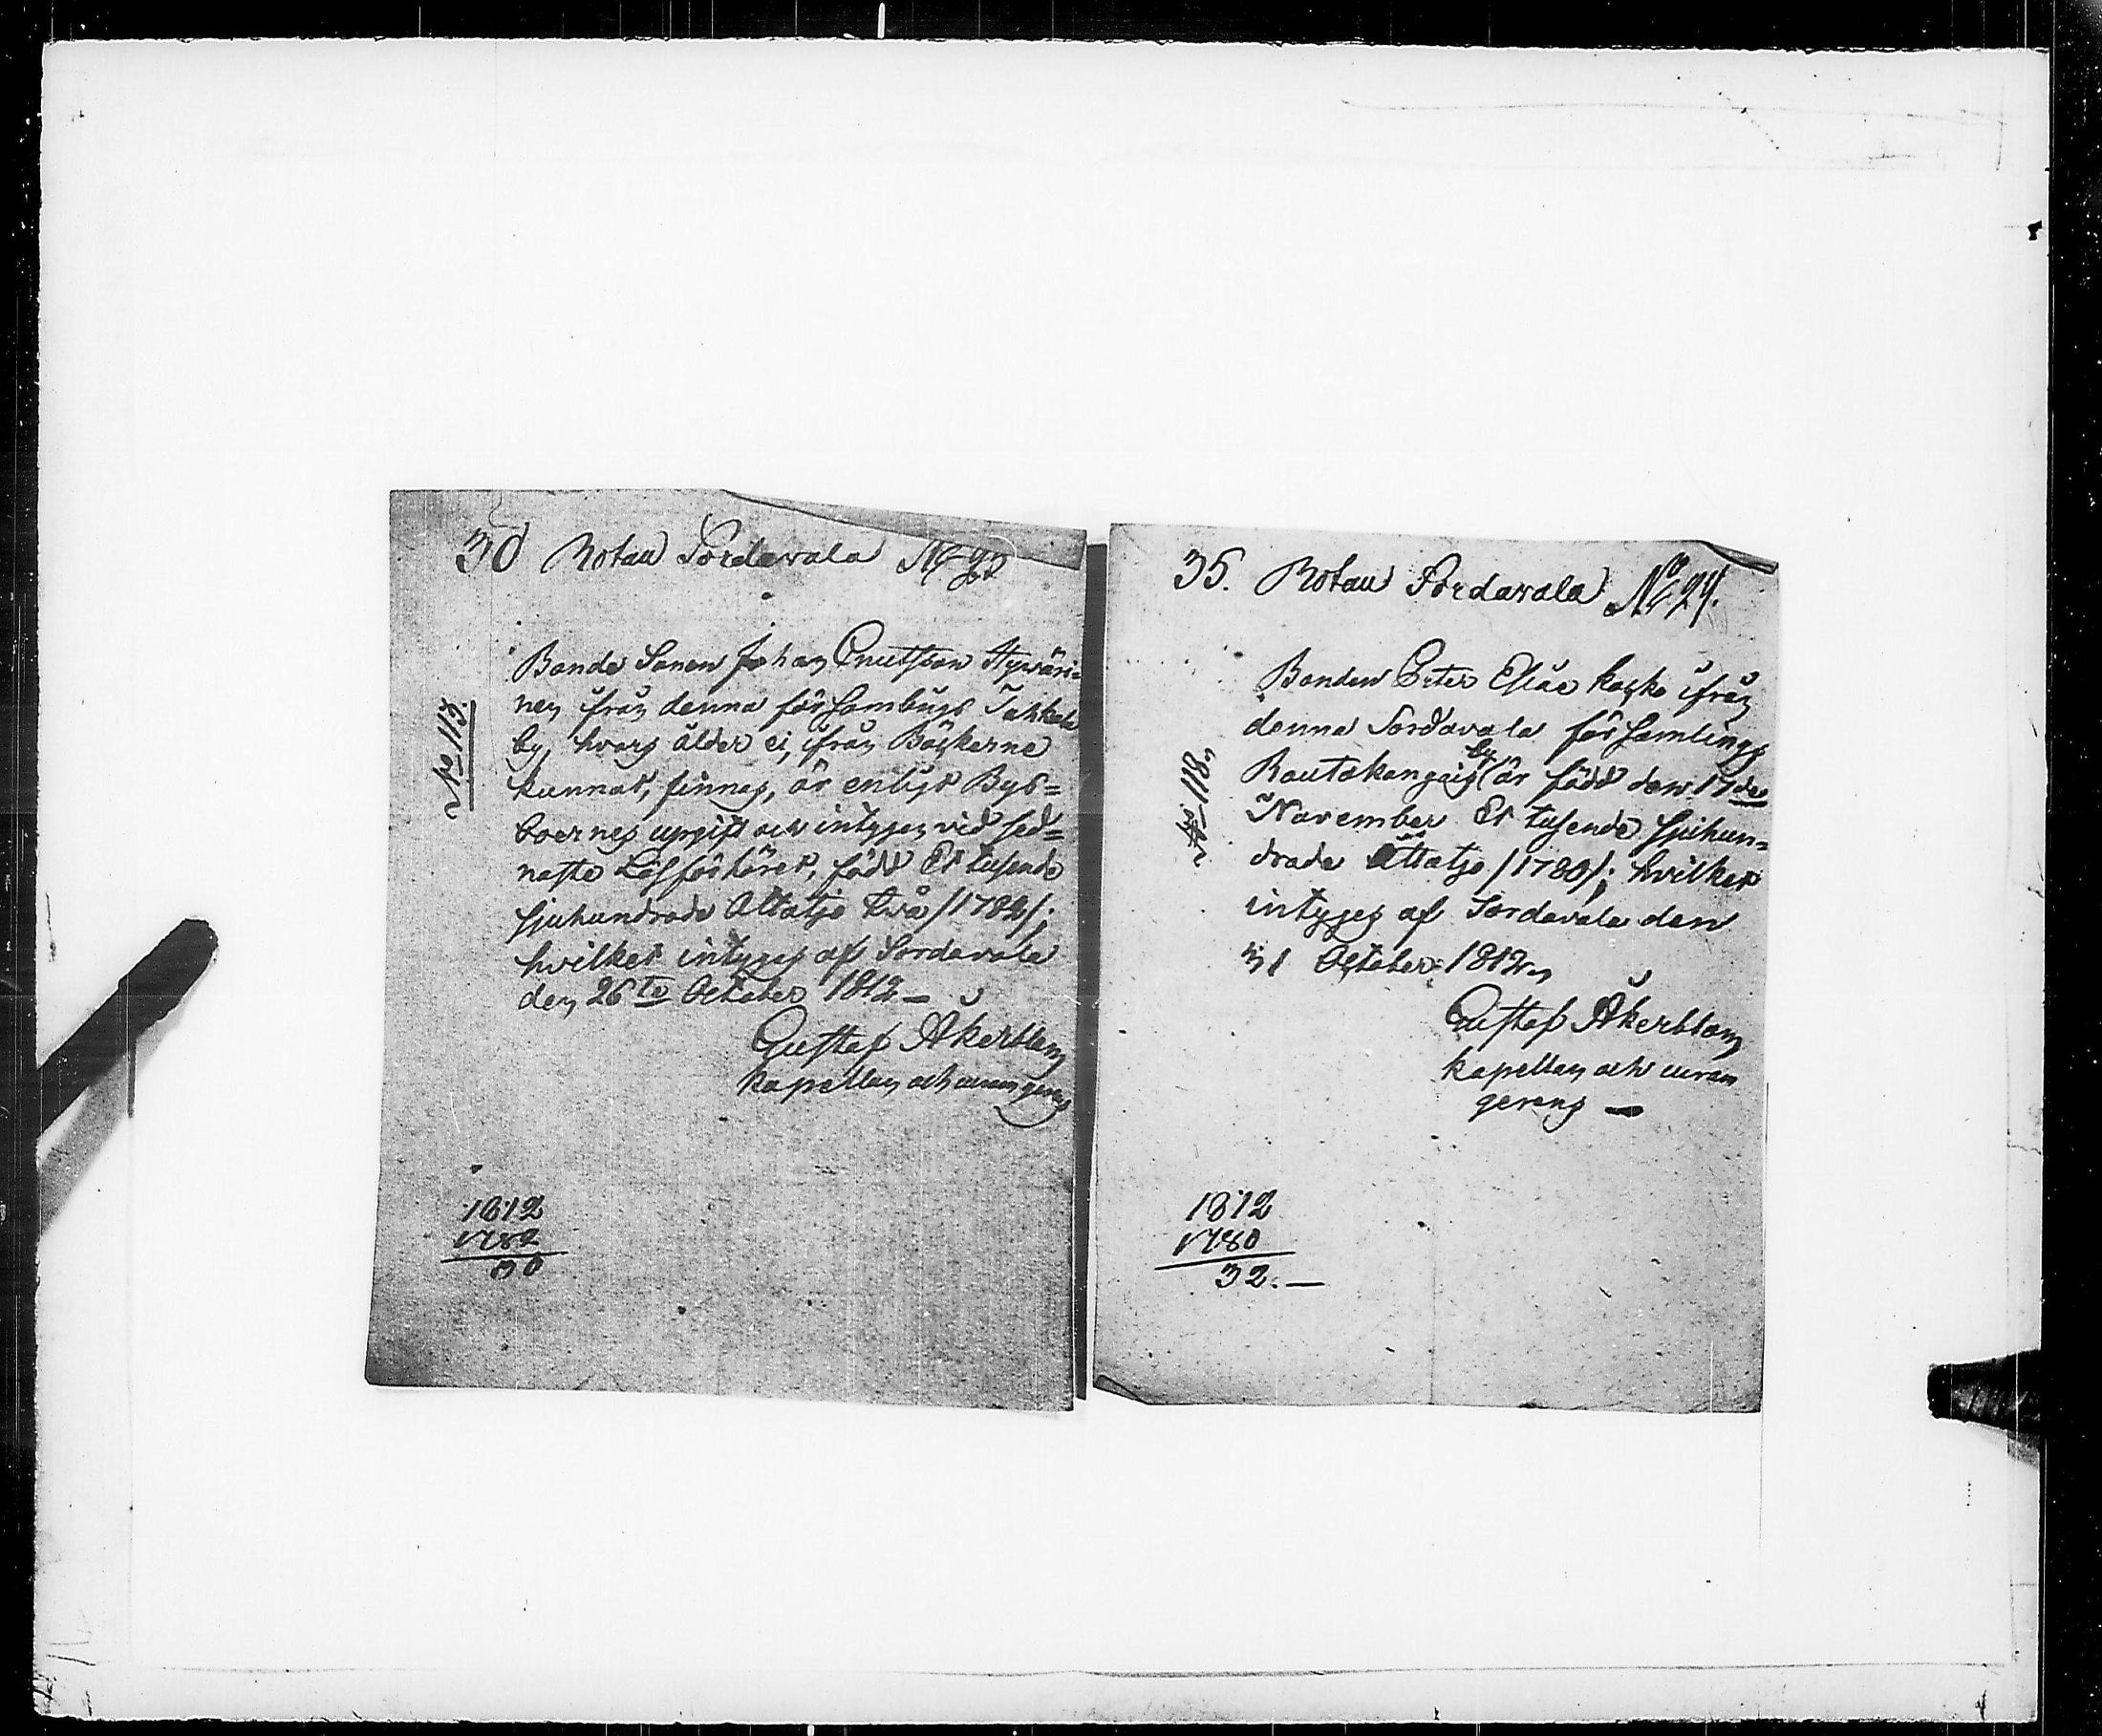 30 Rotan Sordavala No 23
No 113.
Bonde Sonen Johan Cnutsson Hyväri=
nen ifrån denna församlings
by, hvars ålder ei, ifrån Böckerne
kunnat, finnas, är enligt Bys=
boernes upgift och intygen vid sed=
naste Läsförhöret, född Et tusende
sjuhundrade Åttatjo två /1782/;
hvilket intygas af Sordavala
den 26te October 1812 —
Gustaf Åkerblom
Kapellan och curam gerens
1812
1782
30
35. Rotan Sordavala No 24.
No 118.
Bonden Peter Eliæ Kosko ifrån
denna Sordavala församlings
by
Rautakangais är född den 17de
November Et tusende sjuhun=
drade Åttatjo /1780/; hvilket
intyges af Sordavala den
31 October 1812.
Gustaf Åkerblom
Kapellan och curam
gerens —
1812
1780
32. —